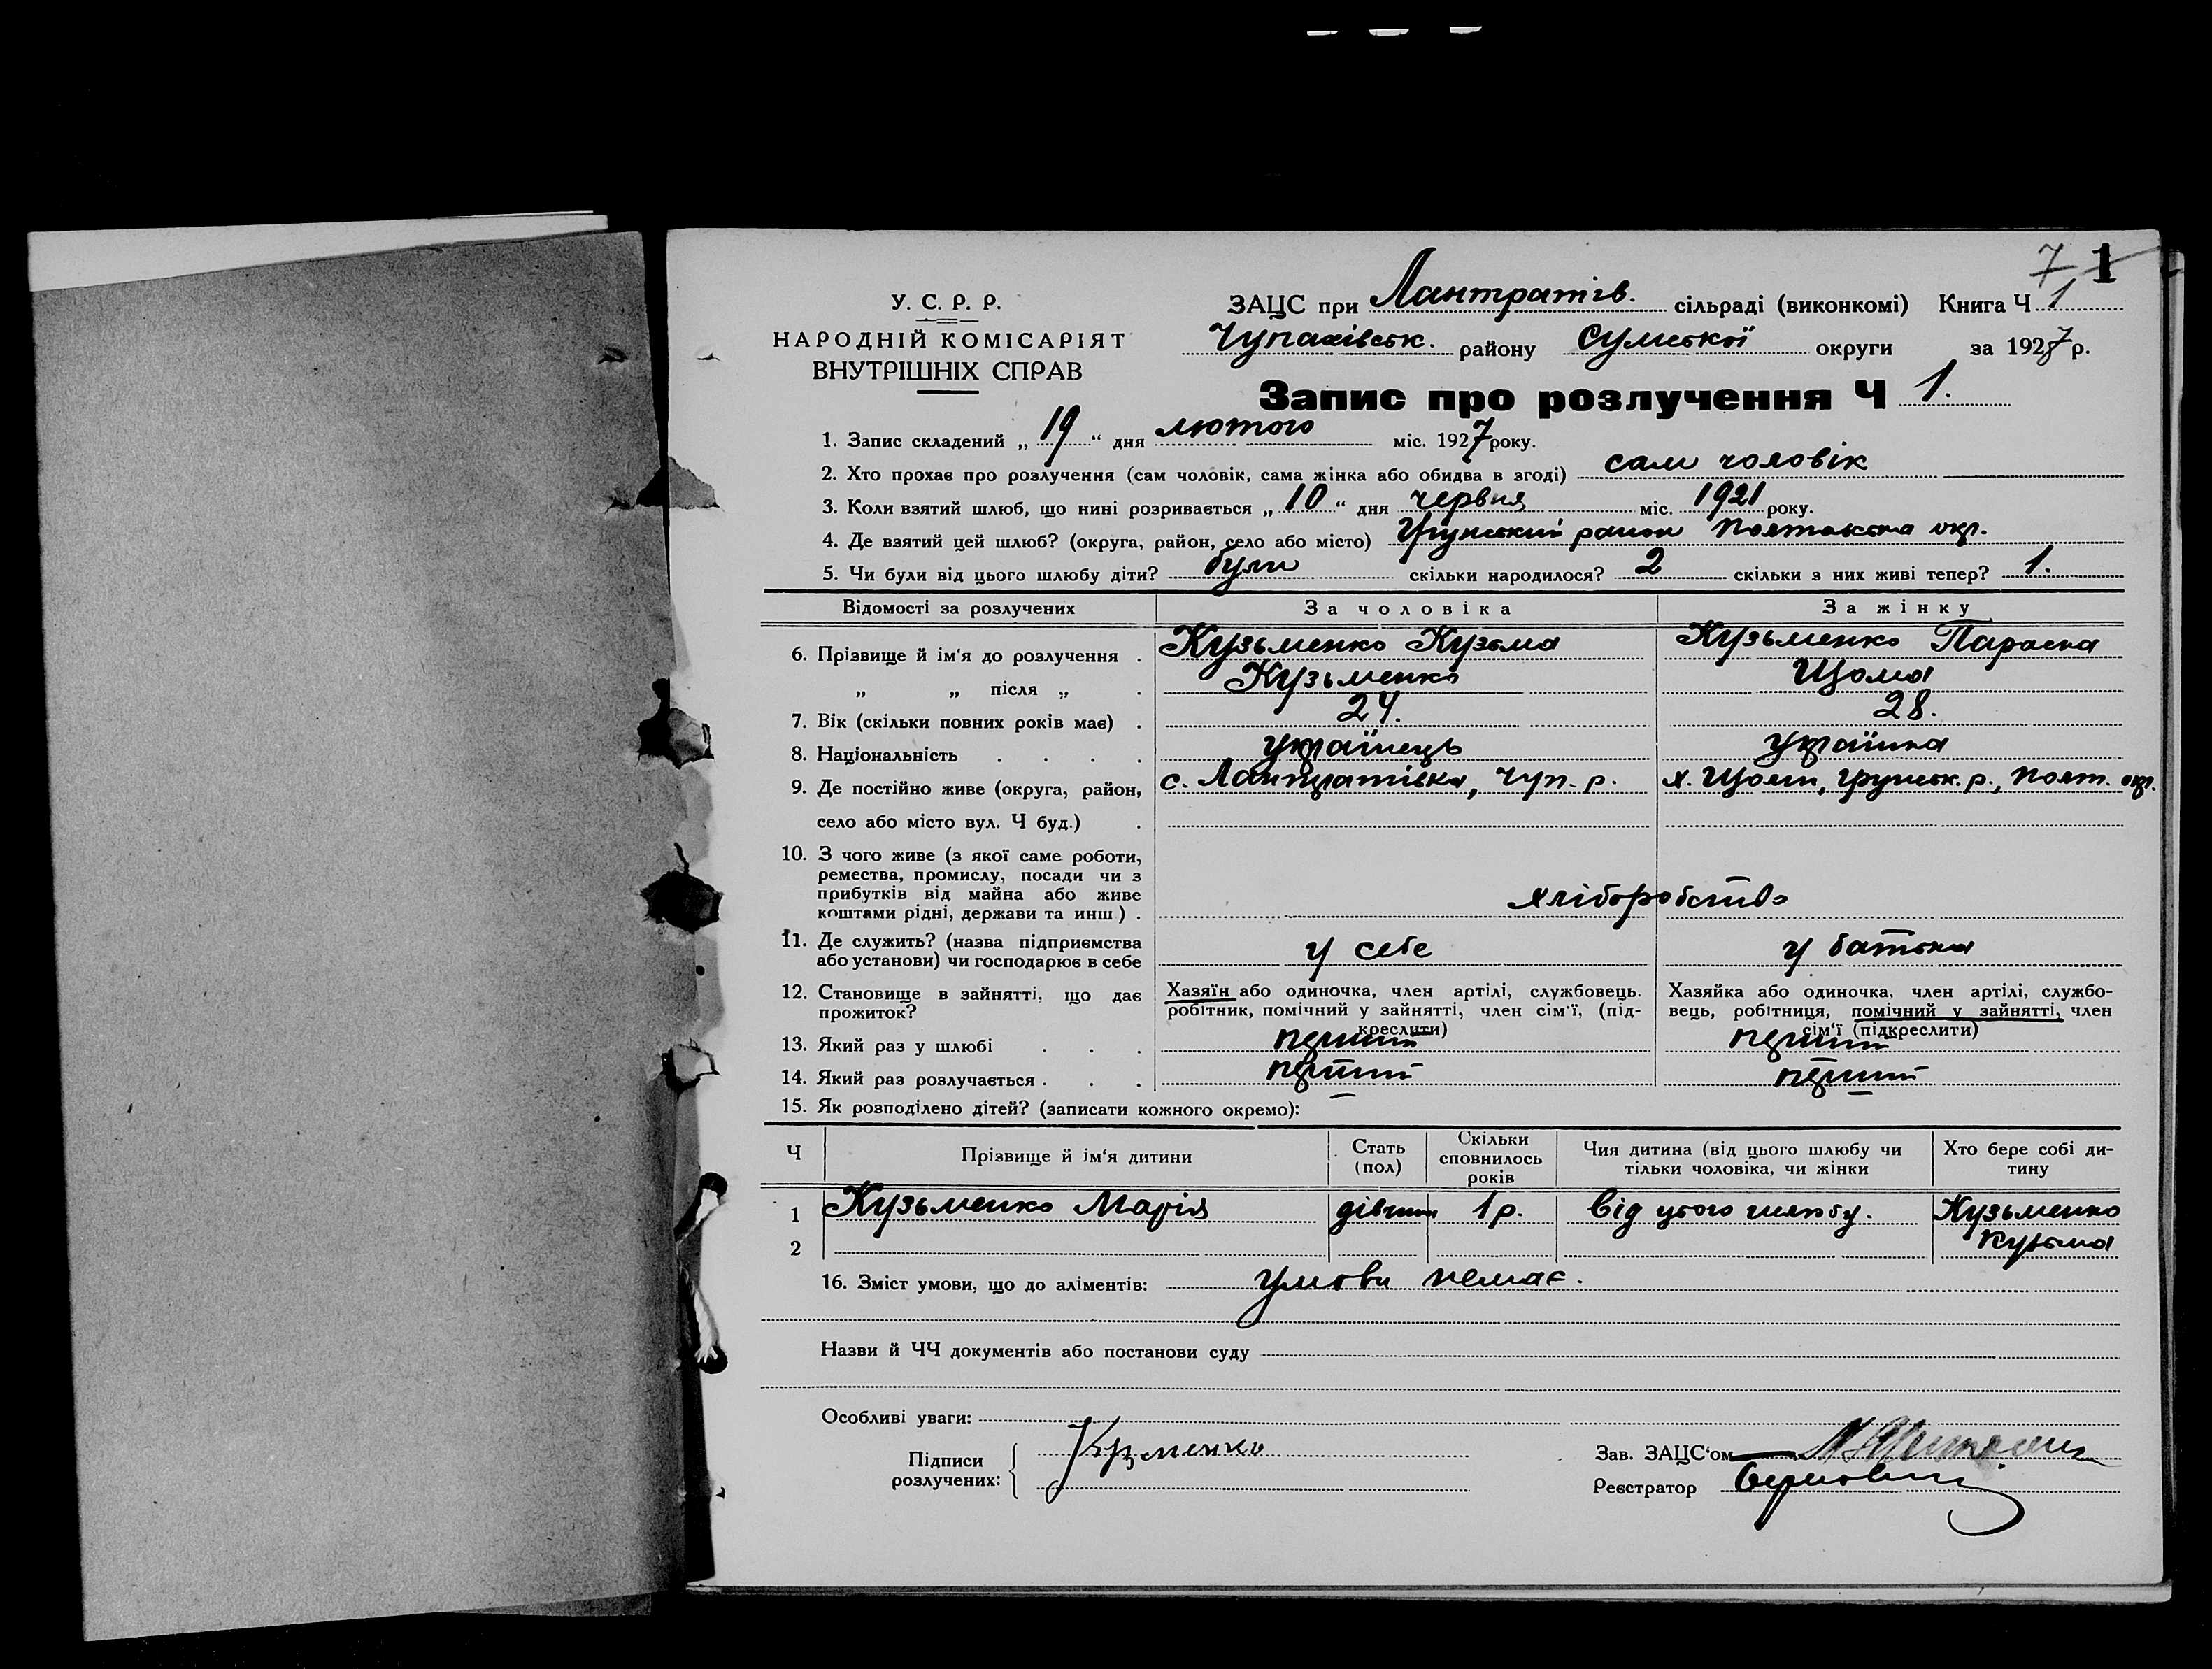 7 1
У. С. Р. Р.
НАРОДНІЙ КОМІСАРІЯТ
ВНУТРІШНІХ СПРАВ
ЗАЦС при Лантратів. сільраді (виконкомі) Книга Ч 1
Чупахівськ. району Сумської округи за 1927 р.
Запис про розлучення Ч 1.
1. Запис складений „ 19 “ дня лютого міс. 1927 року.
2. Хто прохає про розлучення (сам чоловік, сама жінка або обидва в згоді) сам чоловік
3. Коли взятий шлюб, що нині розривається „ 10 “ дня червня міс. 1921 року.
4. Де взятий цей шлюб? (округа, район, село або місто) Грунський район Полтавська окр.
5. Чи були від цього шлюбу діти? були скільки народилося? 2 скільки з них живі тепер? 1.
Відомості за розлучених За чоловіка За жінку
6. Прізвище й ім‘я до розлучення . Кузьменко Кузьма Кузьменко Параска
„ „ після „ . Кузьменко Щома
7. Вік (скільки повних років має) . 24. 28.
8. Національність . . . . українець українка
9. Де постійно живе (округа, район, с. Лантратівка, Чуп. р. х. Щоми, грунськ. р., Полт. окр.
село або місто вул. Ч буд.) .
10. З чого живе (з якої саме роботи,
ремества, промислу, посади чи з
прибутків від майна або живе
коштами рідні, держави та инш ) . хліборобство
11. Де служить? (назва підприємства
або установи) чи господарює в себе у себе у батька
12. Становище в зайнятті, що дає Хазяїн або одиночка, член артілі, службовець. Хазяйка або одиночка, член артілі, службо-
прожиток? робітник, помічний у зайнятті, член сім‘ї, (під- вець, робітниця, помічний у зайнятті, член
креслити) сім‘ї (підкреслити)
13. Який раз у шлюбі . . . перший перший
14. Який раз розлучається . . . перший перший
15. Як розподілено дітей? (записати кожного окремо):
Ч Прізвище й ім‘я дитини Стать (пол) Скільки сповнилось років Чия дитина (від цього шлюбу чи тільки чоловіка, чи жінки Хто бере собі дитину
1 Кузьменко Марія дівчин 1 р. від цього шлюбу. Кузьменко
2 Кузьма
16. Зміст умови, що до аліментів: умови немає.
Назви й ЧЧ документів або постанови суду
Особливі уваги:
Підписи
розлучених: Кузменко
Зав. ЗАЦС‘ом
Реєстратор